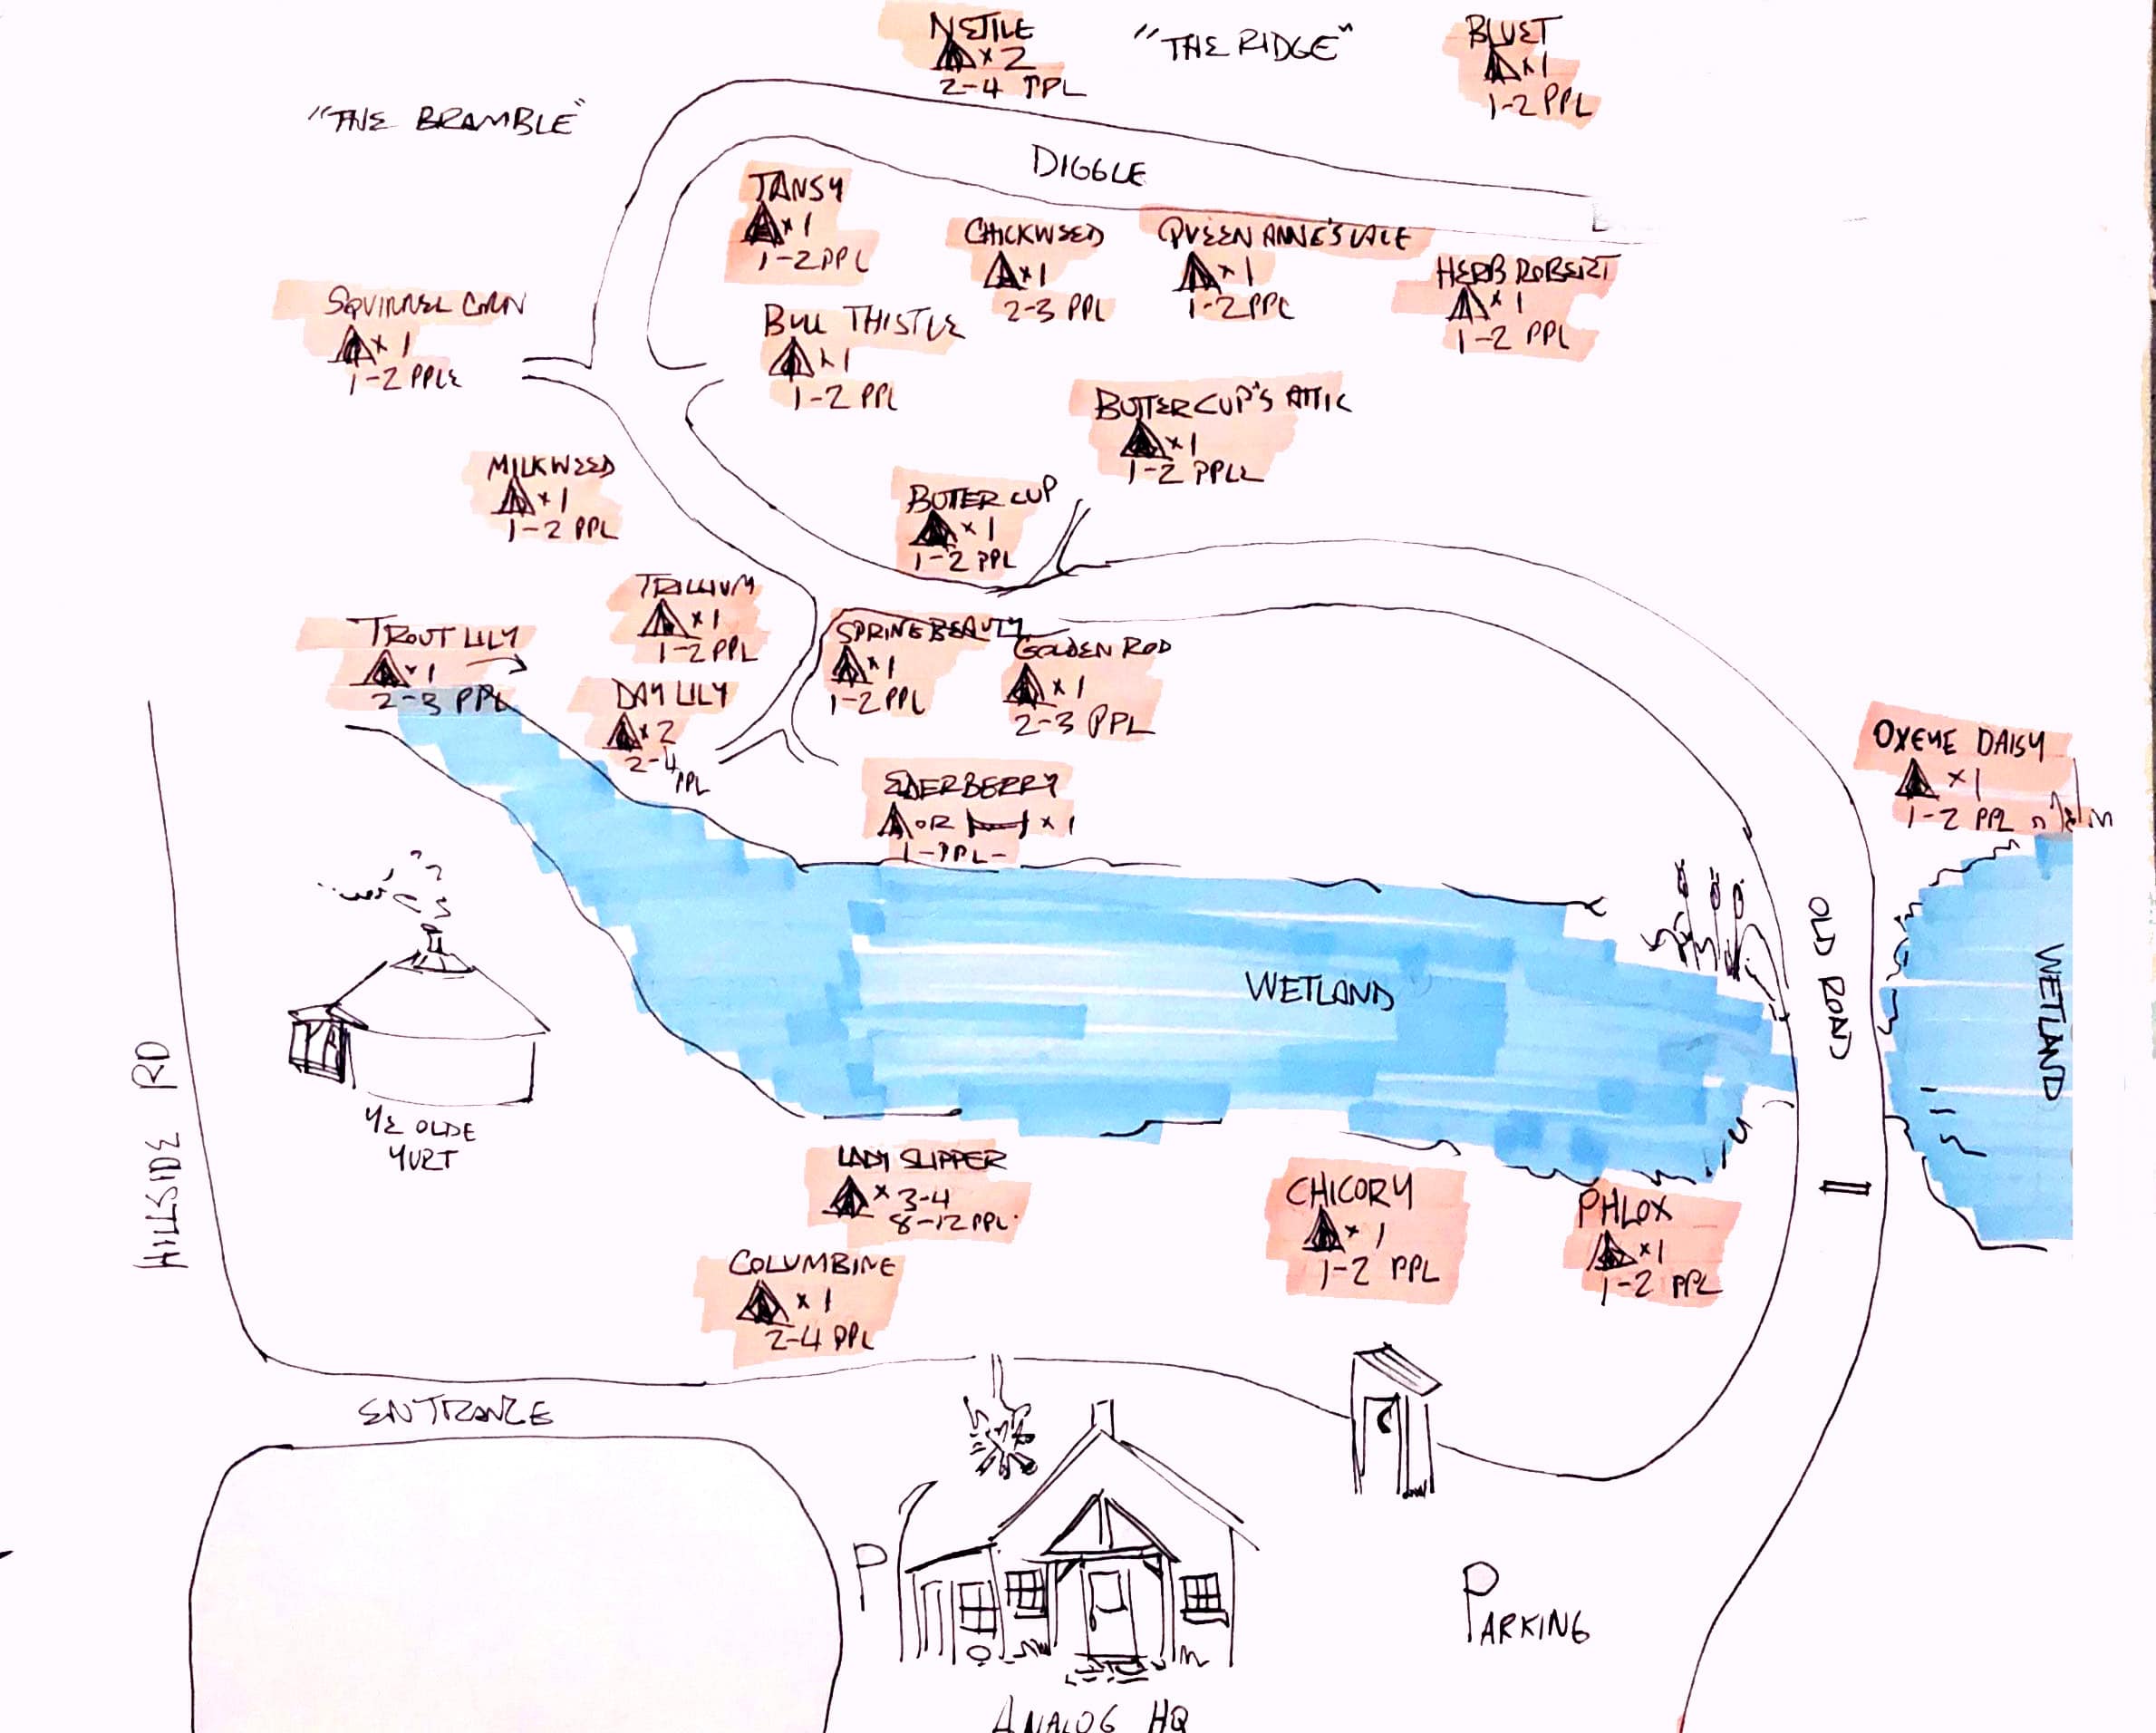 NETTLE
x 2
2-4 PPL
"THE RIDGE"
BLUET
x 1
1-2 PPL
"THE BRAMBLE"
DIGGLE
TANSY
x 1
1-2 PPL
CHICKWEED
x 1
2-3 PPL
QUEEN ANNE'S LACE
x 1
1-2 PPL
HERB ROBERT
x 1
1-2 PPL
SQUIRREL CORN
x 1
1-2 PPLE
BULL THISTLE
x 1
1-2 PPL
BUTTERCUP'S ATTIC
x 1
1-2 PPLE
MILKWEED
x 1
1-2 PPL
BUTERCUP
x 1
1-2 PPL
TRILLIUM
x 1
1-2 PPL
TROUT LILY
x 1
2-3 PPL
SPRING BEAUTY
x 1
1-2 PPL
GOLDEN ROD
x 1
2-3 PPL
DAY LILY
x 2
2-4 PPL
OXEYE DAISY
x 1
1-2 PPL
ELDERBERRY
OR x 1
1-PPL-
OLD ROAD
WETLAND
WETLAND
HILLSIDE RD
YE OLDE
YURT
LADY SLIPPER
x 3-4
8-12 PPL.
CHICORY
x 1
1-2 PPL
PHLOX
x 1
1-2 PPL
COLUMBINE
x 1
2-4 PPL
ENTRANCE
P
PARKING
ANALOG HQ